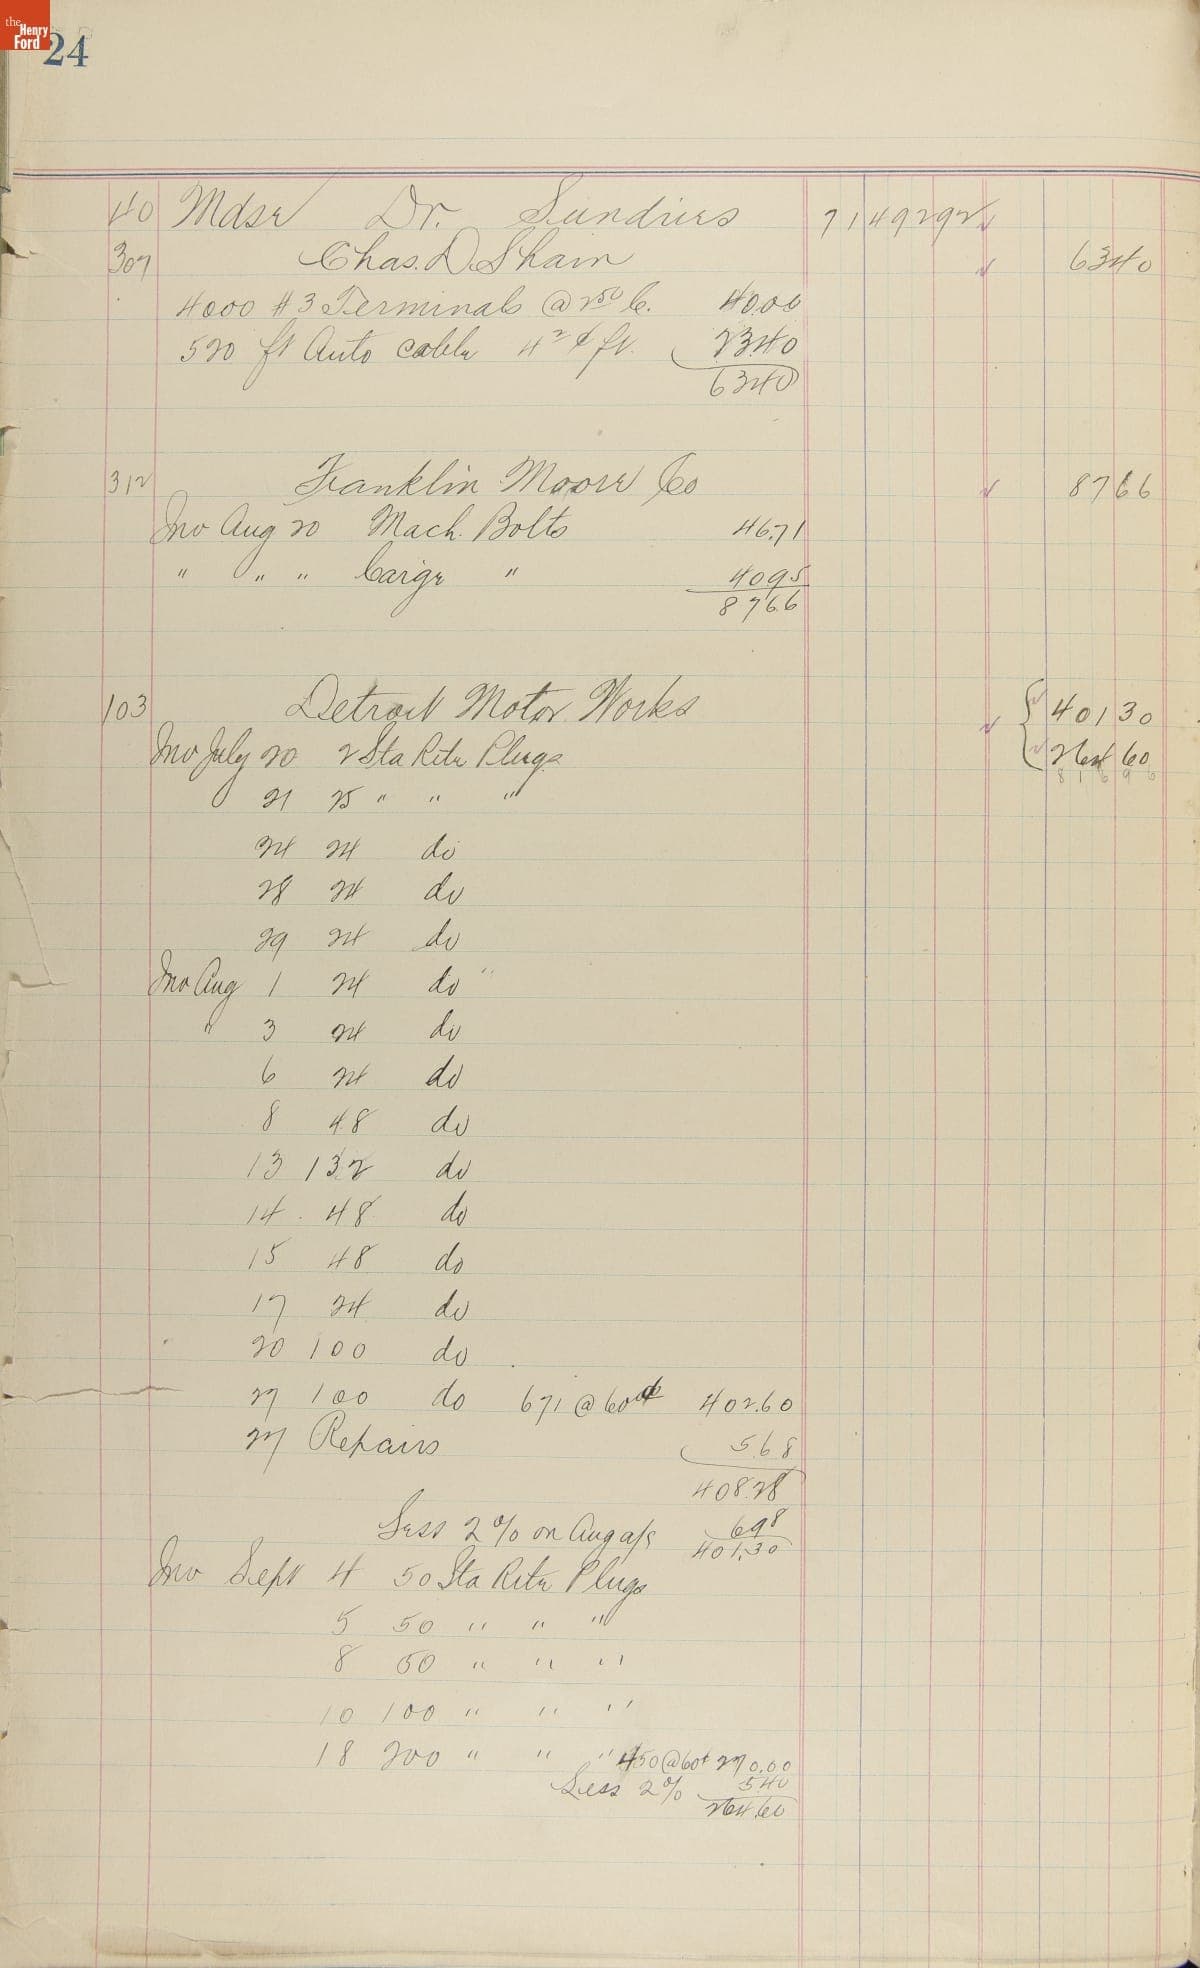 the Henry Ford
24
40 Mdse Dr. Sundries 7149292
307 Chas. D. Shain 6340
4000 #3 Terminals @ 250 C. 40.00
520 ft Auto cable 4 2 ¢ ft. 23.40
6340
312 Franklin Moore Co 8766
Inv Aug 20 Mach. Bolts 46.71
" " " Carige " 4095
87.66
103 Detroit Motor Works 40130
Inv July 20 2 Sta Rite Plugs 26460
21 25 " " " 81696
24 24 do
28 24 do
29 24 do
Inv Aug 1 24 do "
" 3 24 do
6 24 do
8 48 do
13 132 do
14 48 do
15 48 do
17 24 do
20 100 do
27 100 do 671 @ 60¢ 402.60
27 Repairs 5.68
408.28
Less 2% on Aug a/c 698
401.30
Inv Sept 4 50 Sta Rite Plugs
5 50 " " "
8 50 " " "
10 100 " " "
18 200 " " " 450 @ 60¢ 270.00
Less 2% 540
264.60